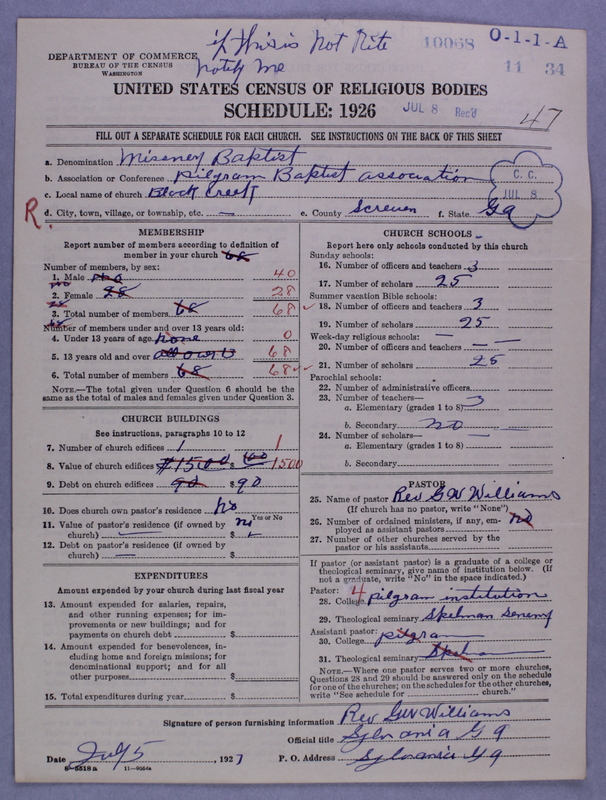 if this is Not Rite
Notify me
10068
O-1-1-A
11 34
DEPARTMENT OF COMMERCE
BUREAU OF THE CENSUS
WASHINGTON
UNITED STATES CENSUS OF RELIGIOUS BODIES
SCHEDULE: 1926
JUL 8 Rec'd
47
FILL OUT A SEPARATE SCHEDULE FOR EACH CHURCH. SEE INSTRUCTIONS ON THE BACK OF THIS SHEET
a. Denomination Missney Baptist
b. Association or Conference pilgram Baptist association
C. C.
JUL 8
c. Local name of church Black Creek
R.
d. City, town, village, or township, etc. — e. County Screven f. State Ga
MEMBERSHIP
Report number of members according to definition of
member in your church 68
Number of members, by sex:
1. Male 40
2. Female 28 28
3. Total number of members 68 68
Number of members under and over 13 years old:
4. Under 13 years of age none 0
5. 13 years old and over 68
6. Total number of members 68 68
NOTE.—The total given under Question 6 should be the
same as the total of males and females given under Question 3.
CHURCH BUILDINGS
See instructions, paragraphs 10 to 12
7. Number of church edifices 1 1
8. Value of church edifices #1500 $ 1500
9. Debt on church edifices 90 $ 90
10. Does church own pastor's residence No
Yes or No
11. Value of pastor's residence (if owned by no
church) — $
12. Debt on pastor's residence (if owned by
church) — $
EXPENDITURES
Amount expended by your church during last fiscal year
13. Amount expended for salaries, repairs,
and other running expenses; for im-
provements or new buildings; and for
payments on church debt $
14. Amount expended for benevolences, in-
cluding home and foreign missions; for
denominational support; and for all
other purposes $
15. Total expenditures during year $
CHURCH SCHOOLS
Report here only schools conducted by this church
Sunday schools:
16. Number of officers and teachers 3
17. Number of scholars 25
Summer vacation Bible schools:
18. Number of officers and teachers 3
19. Number of scholars 25
Week-day religious schools: —
20. Number of officers and teachers —
21. Number of scholars 25
Parochial schools:
22. Number of administrative officers
23. Number of teachers—
a. Elementary (grades 1 to 8) 3
b. Secondary no
24. Number of scholars— —
a. Elementary (grades 1 to 8)
b. Secondary
PASTOR
25. Name of pastor Rev G W Williams
(If church has no pastor, write "None")
26. Number of ordained ministers, if any, em-
ployed as assistant pastors no
27. Number of other churches served by the
pastor or his assistants
If pastor (or assistant pastor) is a graduate of a college or
theological seminary, give name of institution below. (If
not a graduate, write "No" in the space indicated.)
Pastor: 4
28. College pilgram institution
29. Theological seminary Spelman
Assistant pastor:
30. College pilgram
31. Theological seminary
NOTE.—Where one pastor serves two or more churches,
Questions 28 and 29 should be answered only on the schedule
for one of the churches; on the schedules for the other churches,
write "See schedule for church."
Signature of person furnishing information Rev G W Williams
Official title Sylvania Ga
Date July 5, 1927 P. O. Address Sylvania Ga
8—5518a 11—9554a